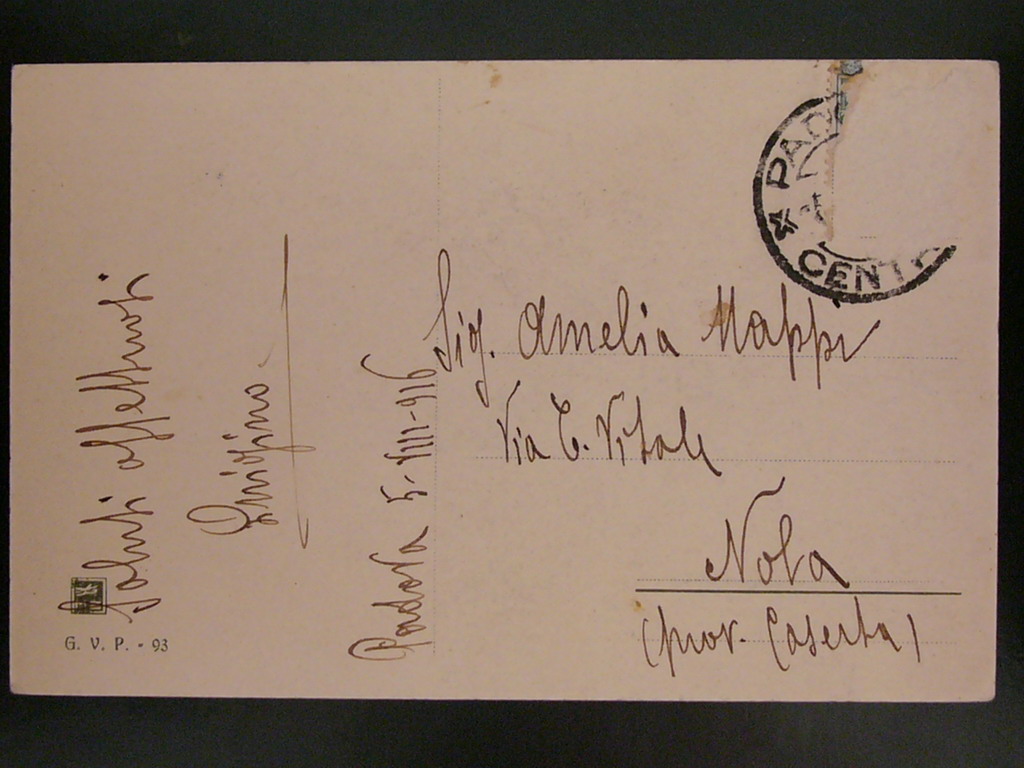 Saluti affettuosi
Luigino
Padova 5-VIII-916
G. V. P. - 93
PADO
CENTR
Sig. Amelia Mappi
Via T. Vitale
Nola
(prov. Caserta)